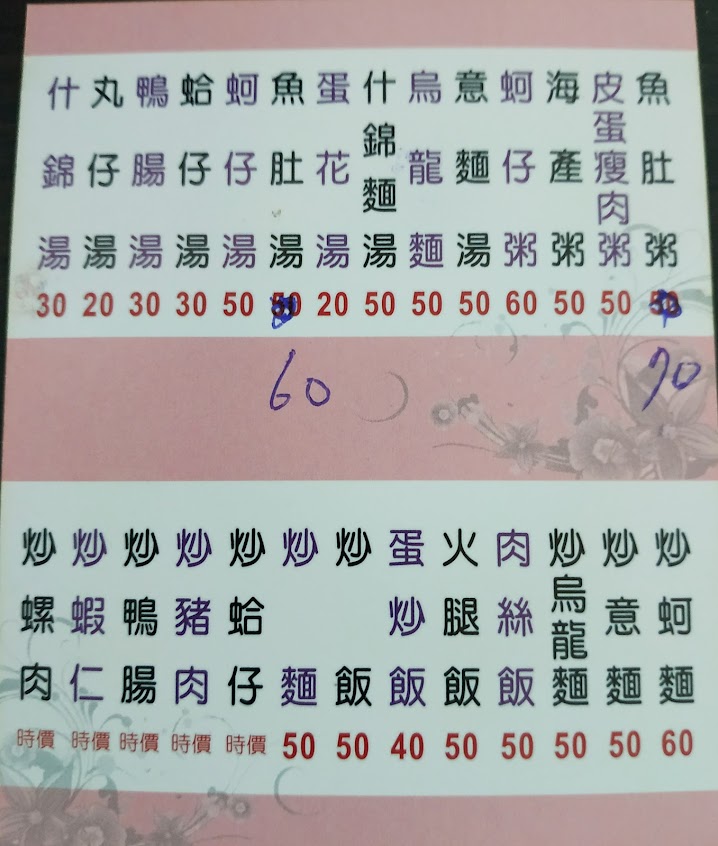 魚肚粥 50 70
皮蛋瘦肉粥 50
海產粥 50
蚵仔粥 60
意麵湯 50
烏龍麵 50
什錦麵湯 50
蛋花湯 20
魚肚湯 50 60
蚵仔湯 50
蛤仔湯 30
鴨腸湯 30
丸仔湯 20
什錦湯 30
炒蚵麵 60
炒意麵 50
炒烏龍麵 50
肉絲飯 50
火腿飯 50
蛋炒飯 40
炒飯 50
炒麵 50
炒蛤仔 時價
炒豬肉 時價
炒鴨腸 時價
炒蝦仁 時價
炒螺肉 時價